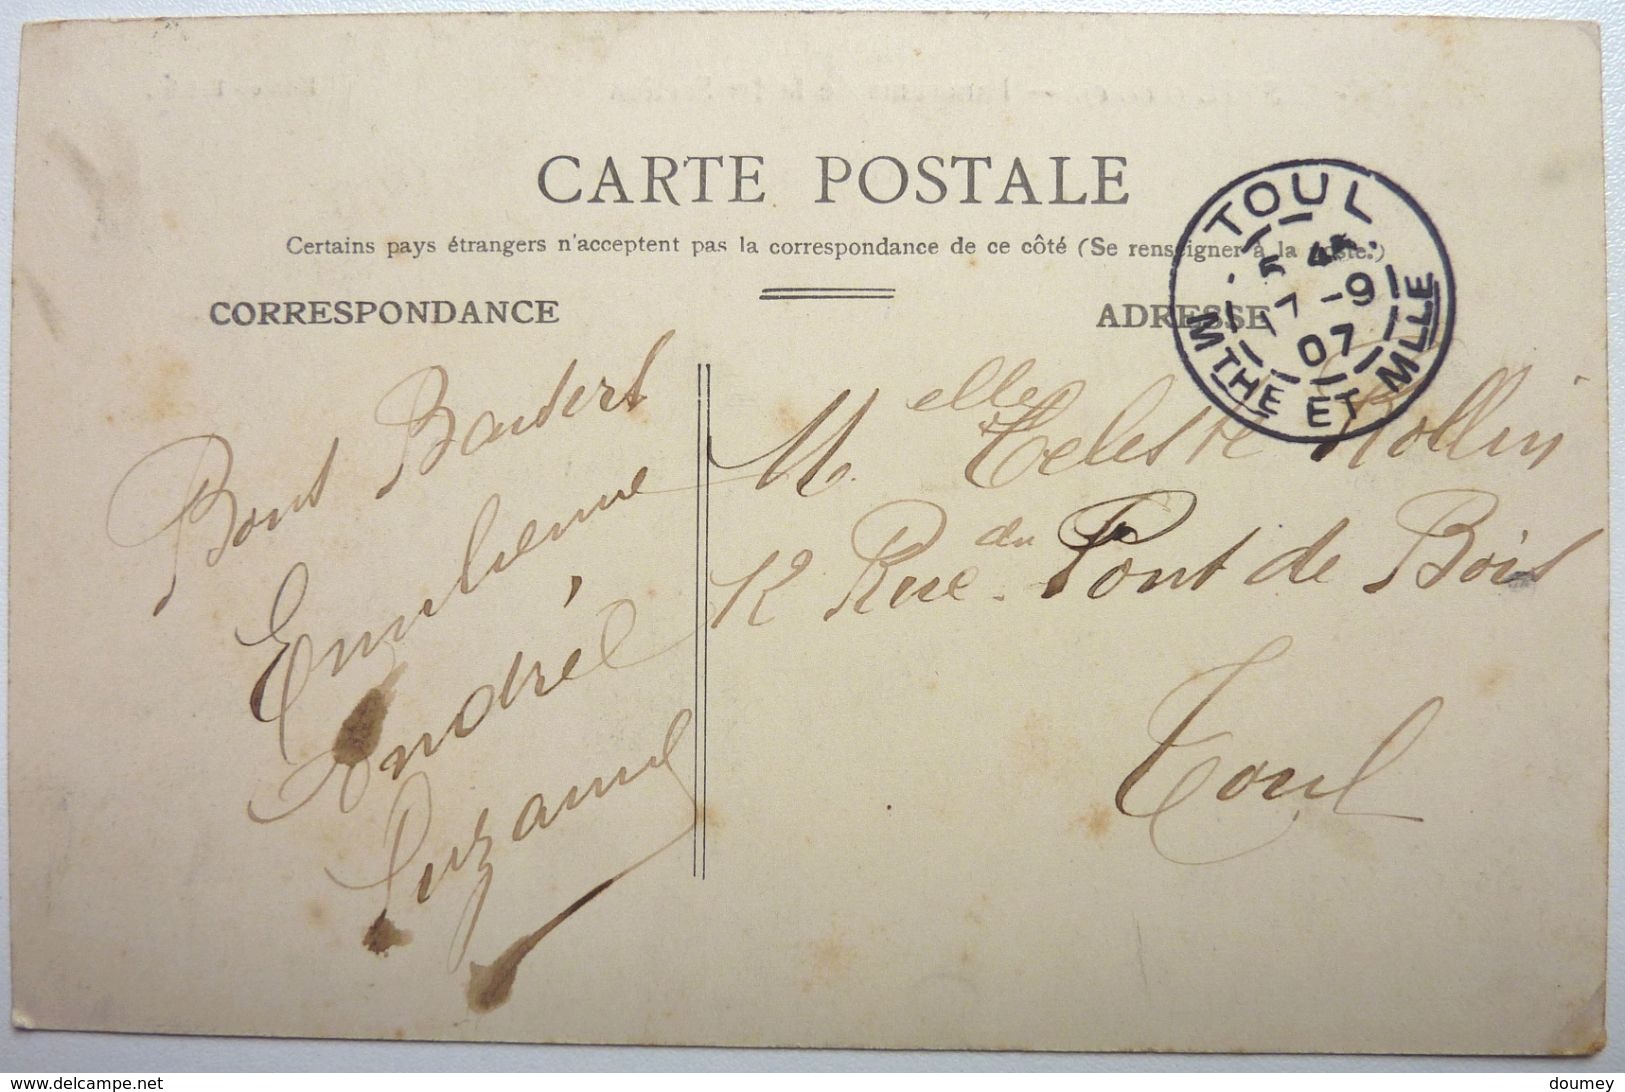 CARTE POSTALE
Certains pays étrangers n'acceptent pas la correspondance de ce côté (Se renseigner à la poste.)
CORRESPONDANCE
ADRESSE
TOUL
5 45
17 -9
07
MTHE ET MLLE
Bont Baudert
Emilienne
André
Suzanne
Melle Celeste Rollin
12 Rue du Pont de Bois
Toul
© delcampe.net
doumey